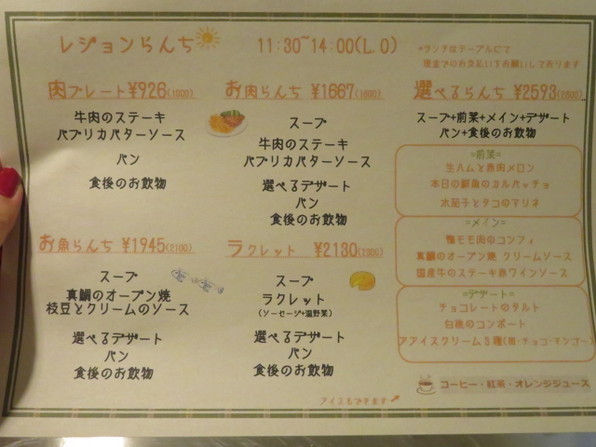 レジョンらんち
11:30~14:00(L.O)
*ランチはテーブルにて
現金でのお支払いをお願いしております
肉プレート ¥926(1000)
牛肉のステーキ
パプリカバターソース
パン
食後のお飲物
お肉らんち ¥1667(1800)
スープ
牛肉のステーキ
パプリカバターソース
選べるデザート
パン
食後のお飲物
選べるらんち ¥2593(2800)
スープ+前菜+メイン+デザート
パン+食後のお飲物
=前菜=
生ハムと赤肉メロン
本日の鮮魚のカルパッチョ
水茄子とタコのマリネ
=メイン=
鴨モモ肉のコンフィ
真鯛のオーブン焼 クリームソース
国産牛のステーキ赤ワインソース
=デザート=
チョコレートのタルト
白桃のコンポート
アアイスクリーム3種(苺・チョコ・マンゴー)
コーヒー・紅茶・オレンジジュース
お魚らんち ¥1945(2100)
スープ
真鯛のオーブン焼
枝豆とクリームのソース
選べるデザート
パン
食後のお飲物
ラクレット ¥2130(2300)
スープ
ラクレット
(ソーセージ+温野菜)
選べるデザート
パン
食後のお飲物
アイスもできます